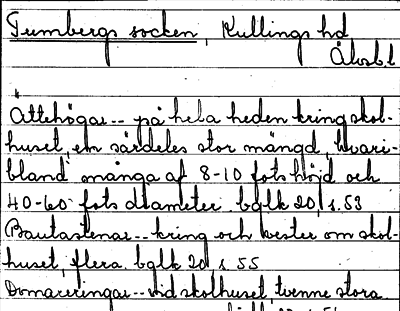 Tumbergs socken, Kullings hd
Älvsb.l
Ättehögar -- på hela heden kring skol-
huset, en särdeles stor mängd, hvari-
bland många af 8-10 fots höjd och
40-60 fots diameter. bglk 20, s. 53
Bautastenar -- kring och vester om skol-
huset, flera. bglk 20, s. 55
Domareringar -- vid skolhuset, tvenne stora